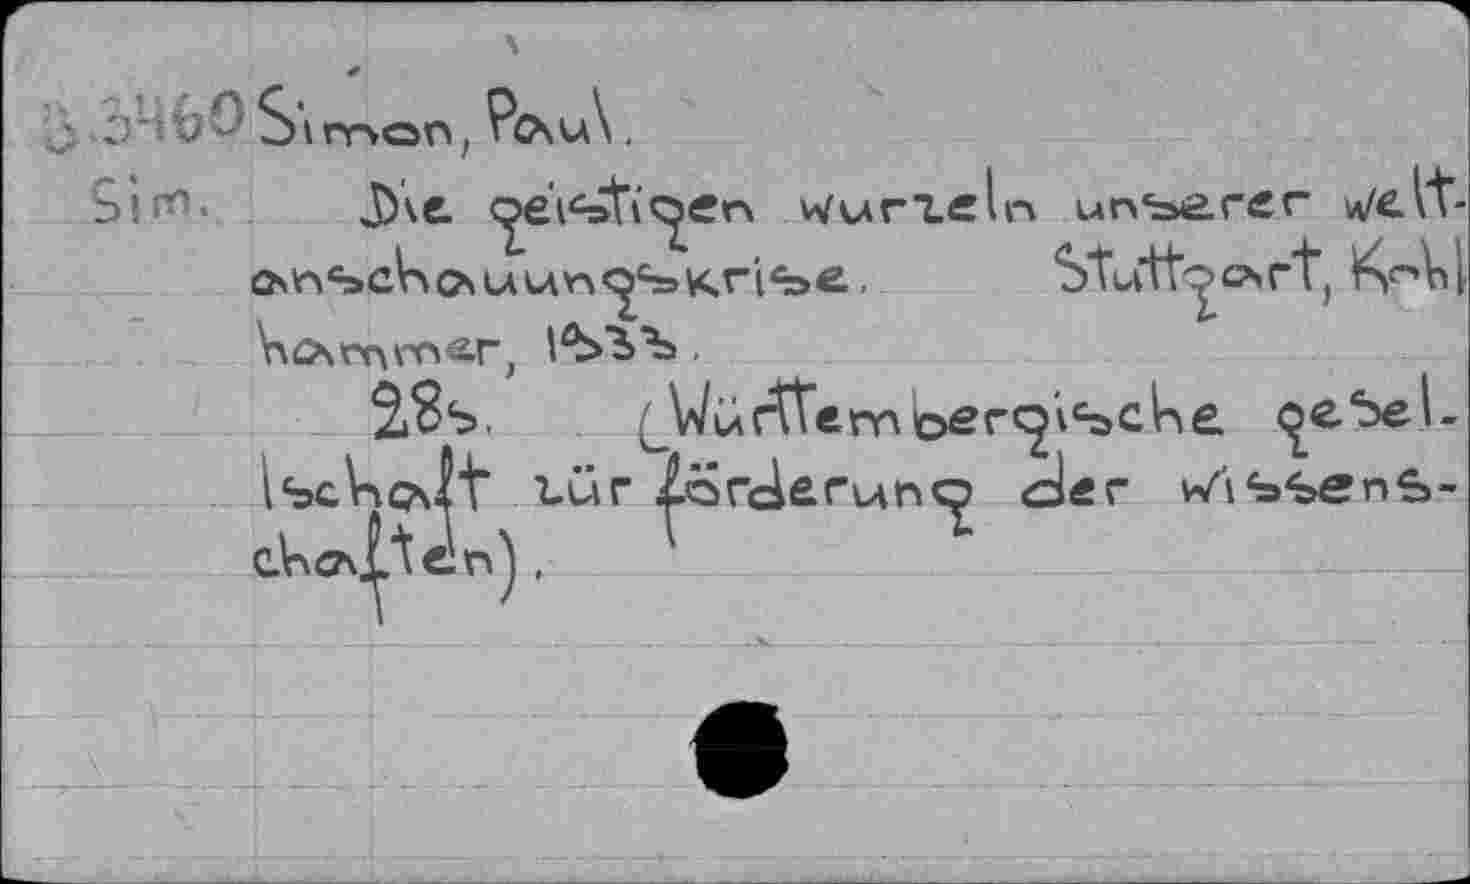 3.3460 Simon, Paul.
Sim. Die geistigen wurzeln unserer welt-
anschauungskrise. Stuttgart, Kohl
hammer, 1933.
28s. (Württembergische gesel-
lschaft zür förderung der wissens-
chaften).